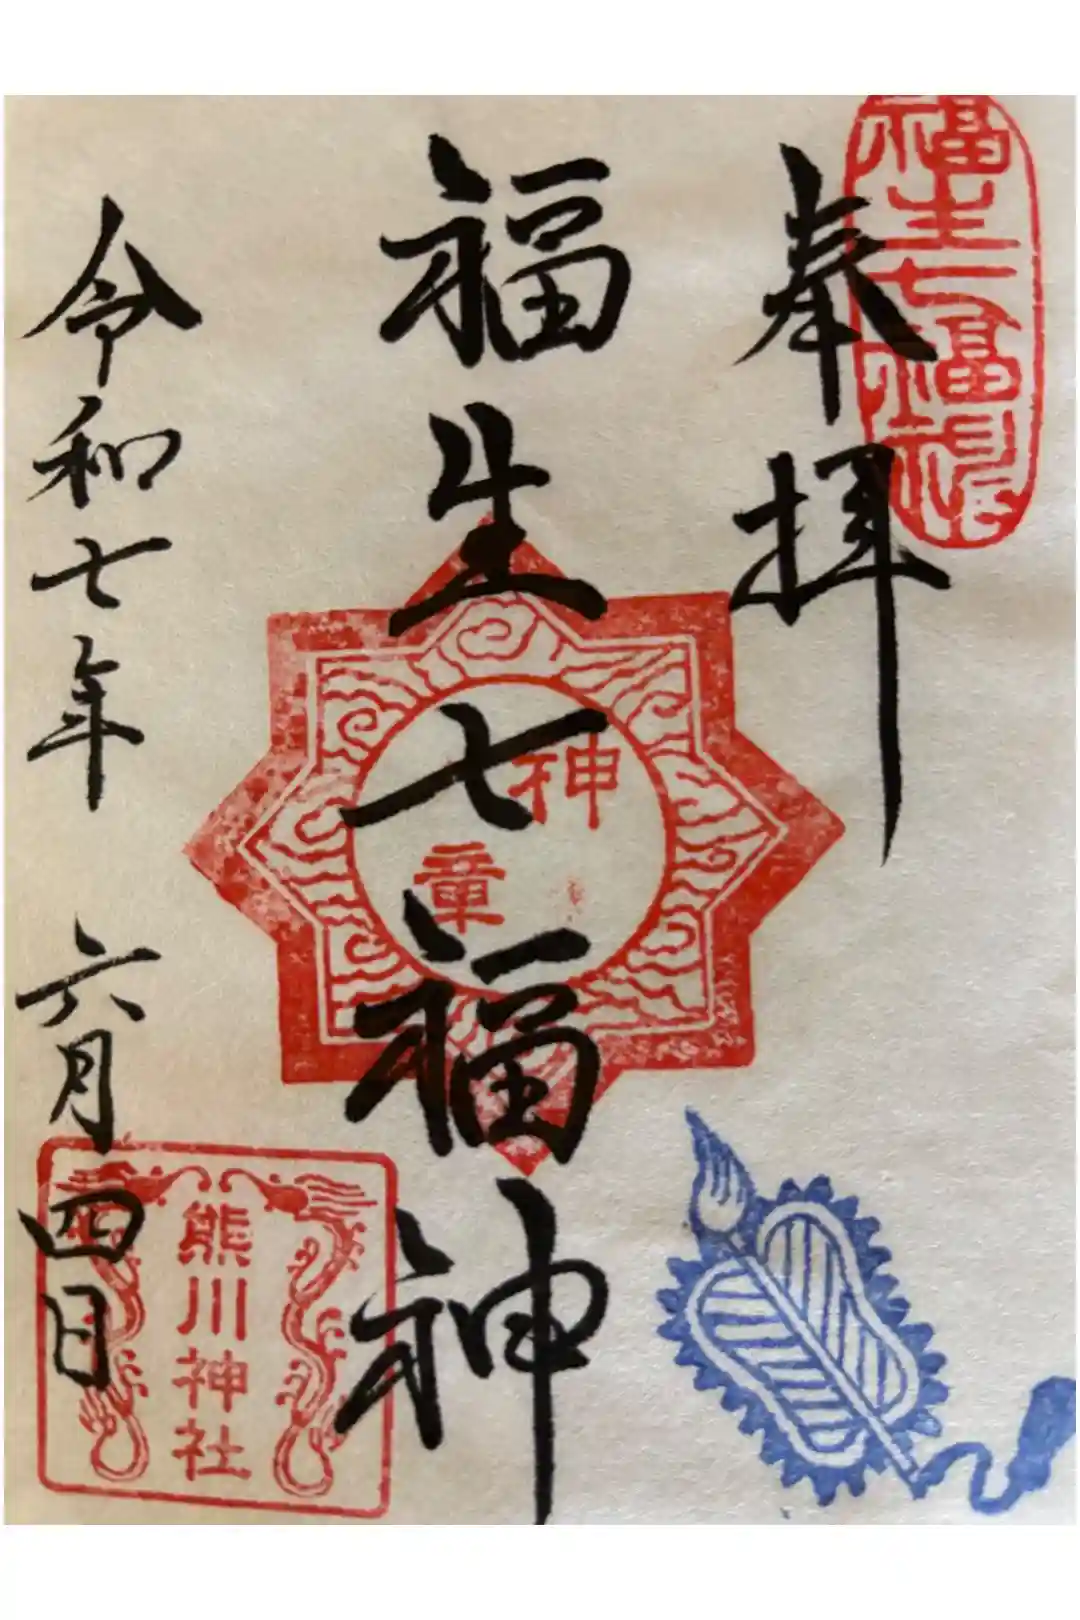 奉拝
福生七福神
福生七福神
神
章
令和七年 六月四日
熊川神社